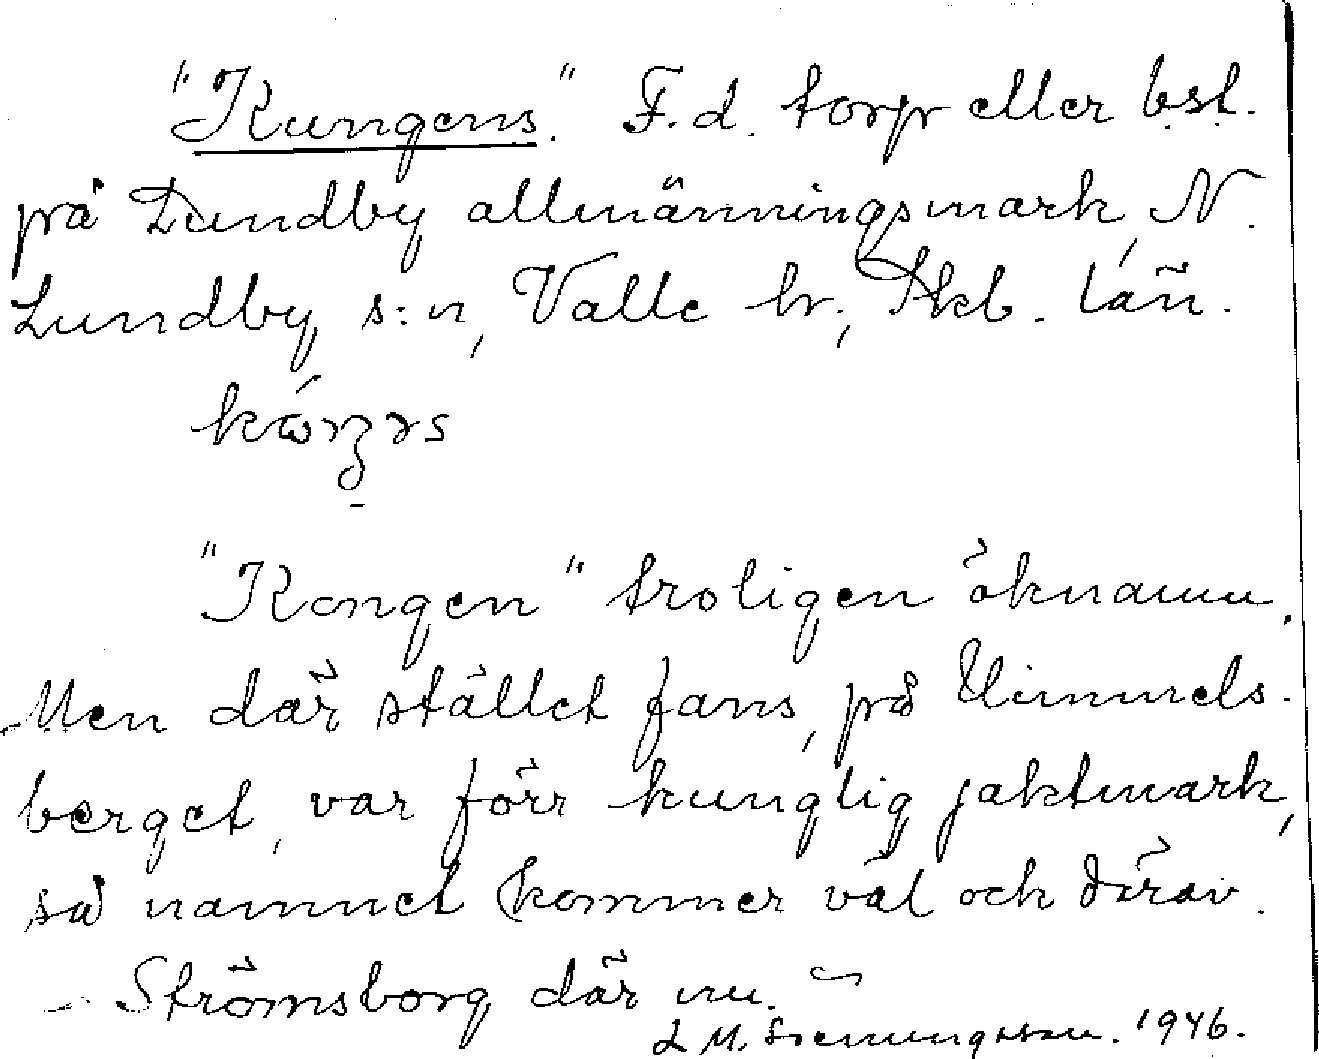 "Kungens." F.d. torp eller bst.
på Lundby allmänningsmark, N.
Lundby s:n, Valle hr., Skb. län.
"Kongen" troligen öknamn.
Men där stället fans, på Himmels-
berget, var förr kunglig jaktmark,
så namnet kommer väl och därav.
– Strömsborg där nu.
L M. Svenungsson. 1946.